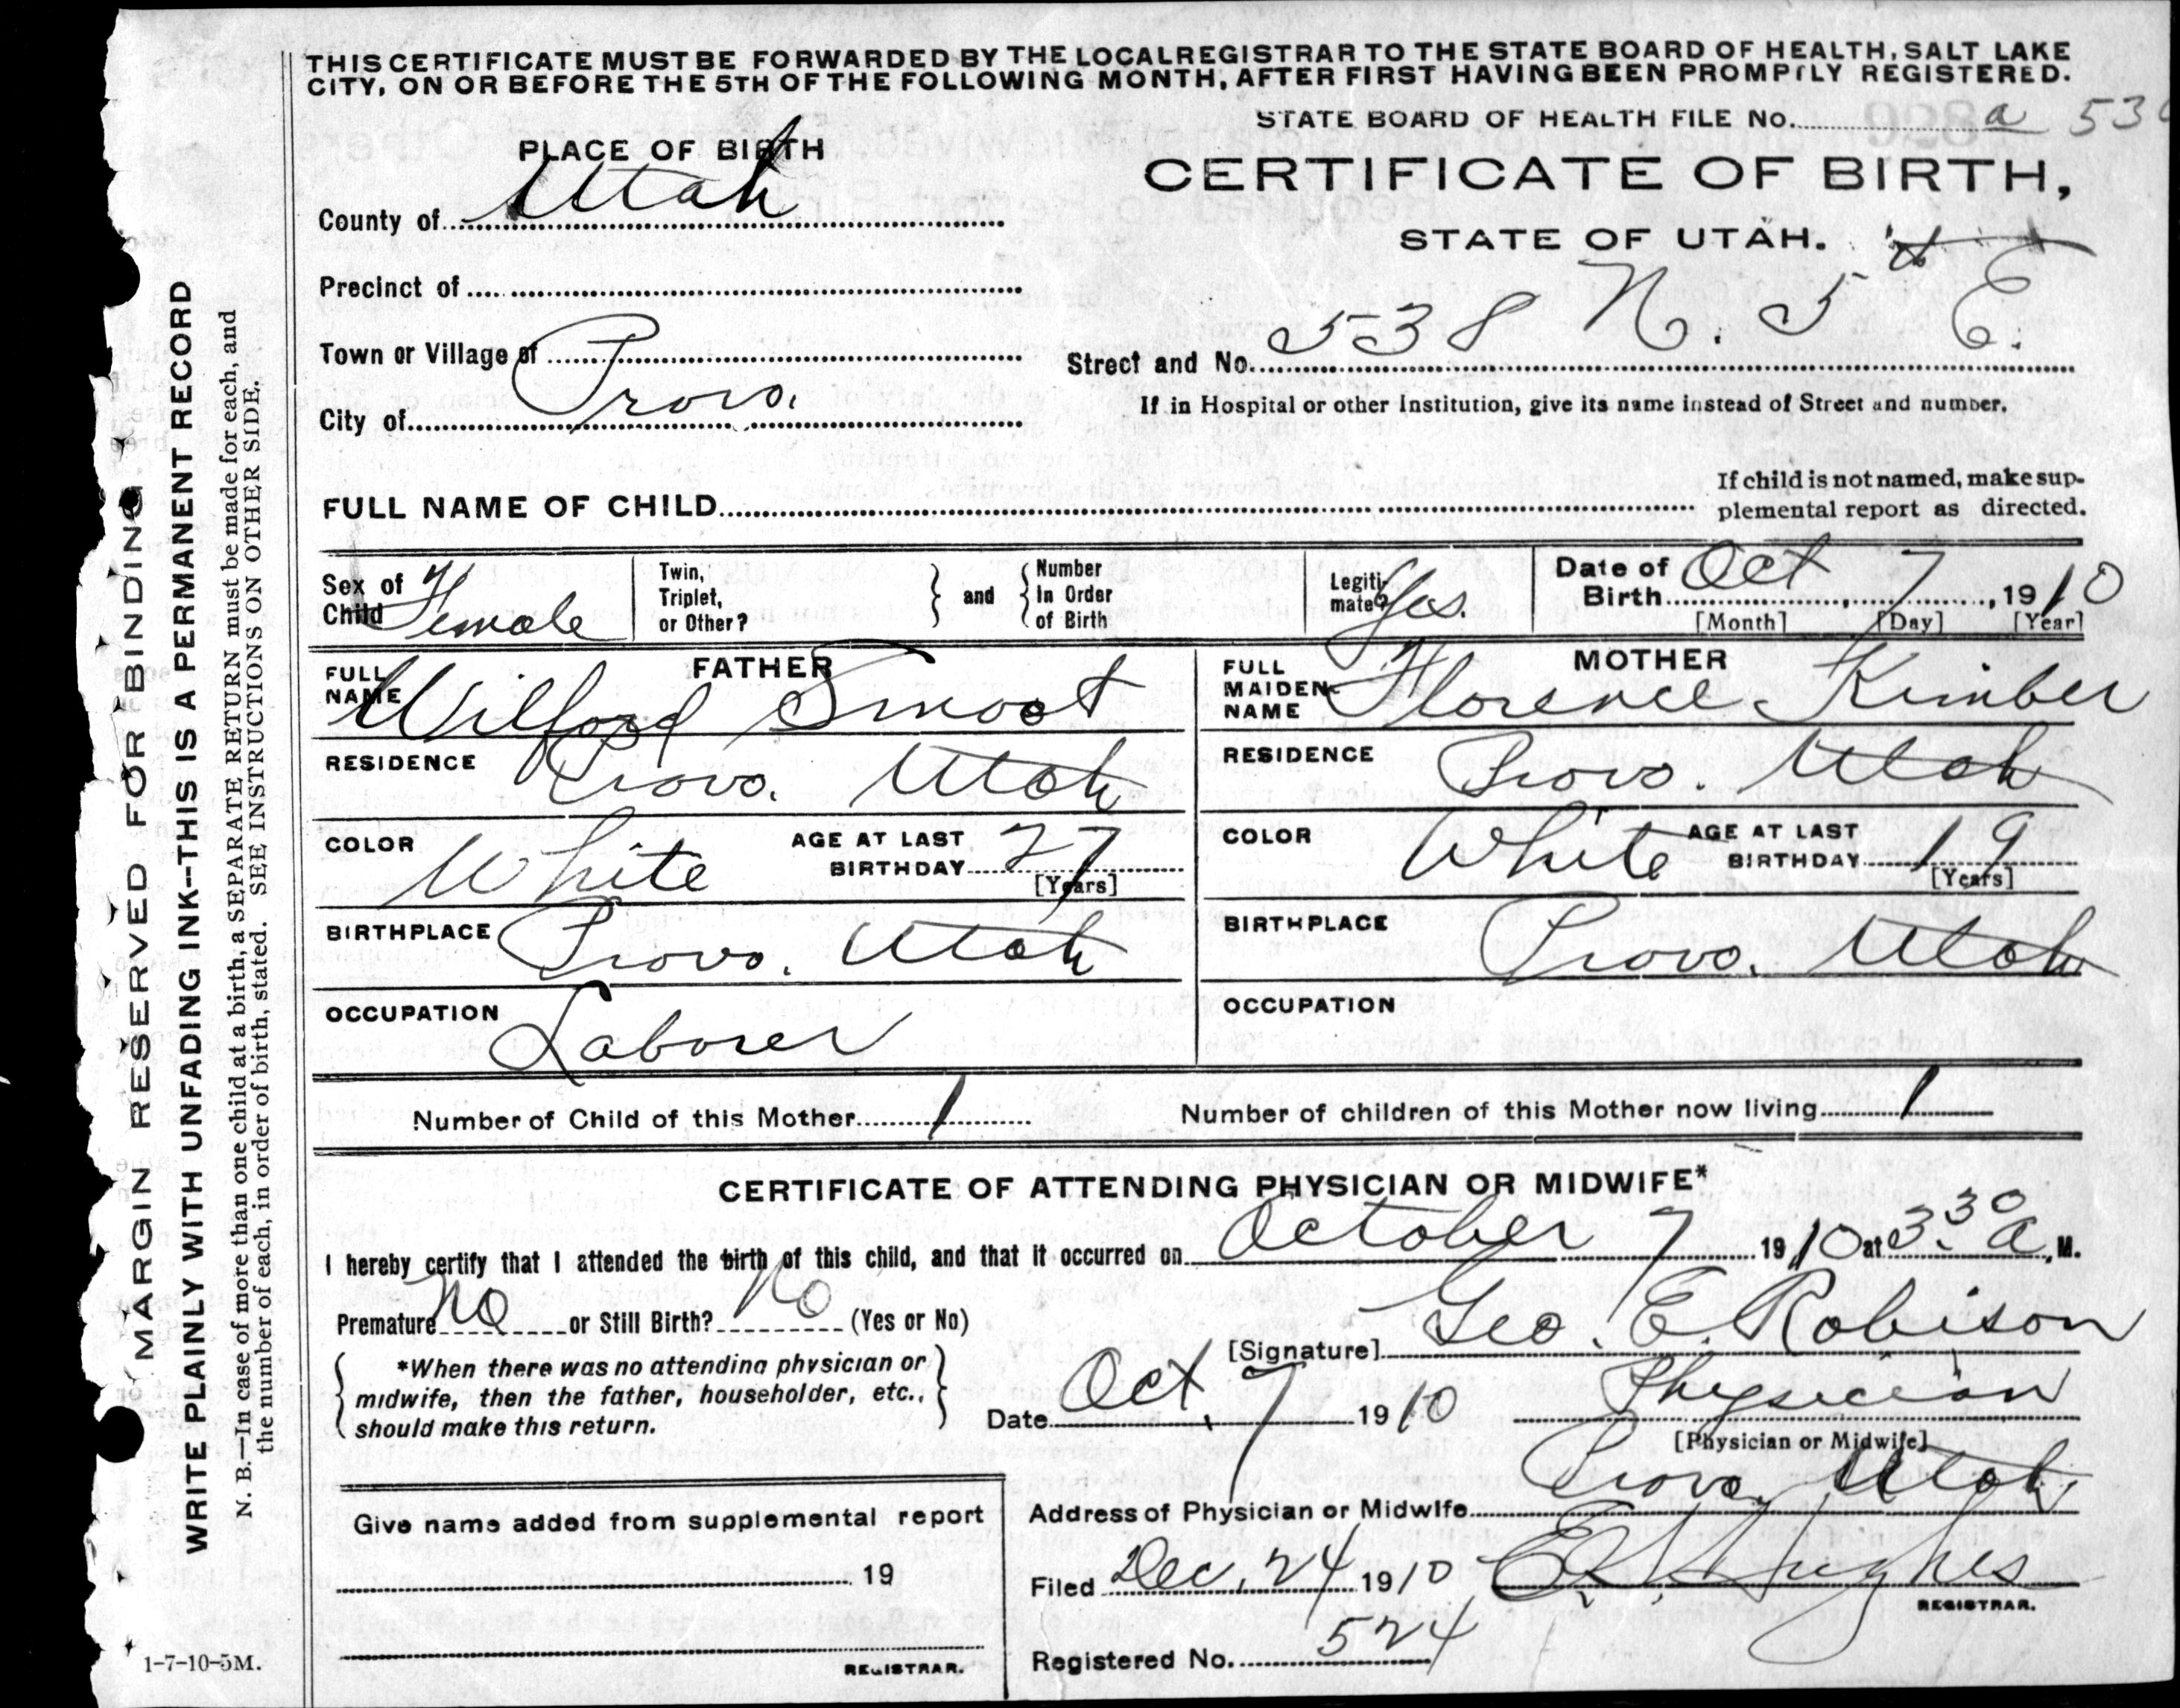 THIS CERTIFICATE MUST BE FORWARDED BY THE LOCAL REGISTRAR TO THE STATE BOARD OF HEALTH, SALT LAKE
CITY, ON OR BEFORE THE 5TH OF THE FOLLOWING MONTH, AFTER FIRST HAVING BEEN PROMPTLY REGISTERED.
STATE BOARD OF HEALTH FILE No. a 530
PLACE OF BIRTH
CERTIFICATE OF BIRTH,
County of Utah
STATE OF UTAH.
Precinct of
Town or Village of
Street and No. 538 N. 5 E.
City of Provo.
If in Hospital or other Institution, give its name instead of Street and number.
FULL NAME OF CHILD
If child is not named, make sup-
plemental report as directed.
Sex of Child Female
Twin, Triplet, or Other?
and
Number In Order of Birth
Legiti-mate? Yes.
Date of Birth Oct 7, 1910
[Month] [Day] [Year]
FATHER
FULL NAME Wilford Smoot
MOTHER
FULL MAIDEN NAME Florence Kimber
RESIDENCE Provo. Utah
RESIDENCE Provo. Utah
COLOR White AGE AT LAST BIRTHDAY 27 [Years]
COLOR White AGE AT LAST BIRTHDAY 19 [Years]
BIRTHPLACE Provo. Utah
BIRTHPLACE Provo. Utah
OCCUPATION Laborer
OCCUPATION
Number of Child of this Mother 1
Number of children of this Mother now living 1
CERTIFICATE OF ATTENDING PHYSICIAN OR MIDWIFE*
I hereby certify that I attended the birth of this child, and that it occurred on October 7 1910 at 3.30 a. M.
Premature No or Still Birth? No (Yes or No)
[Signature] Geo. E. Robison
*When there was no attending physician or
midwife, then the father, householder, etc.,
should make this return.
Date Oct, 7 1910
Physician
[Physician or Midwife]
Address of Physician or Midwife Provo. Utah
Give name added from supplemental report
19
REGISTRAR.
Filed Dec. 24 1910 Hughes
REGISTRAR.
Registered No. 524
1-7-10-5M.
MARGIN RESERVED FOR BINDING
WRITE PLAINLY WITH UNFADING INK—THIS IS A PERMANENT RECORD
N. B.—In case of more than one child at a birth, a SEPARATE RETURN must be made for each, and
the number of each, in order of birth, stated. SEE INSTRUCTIONS ON OTHER SIDE.